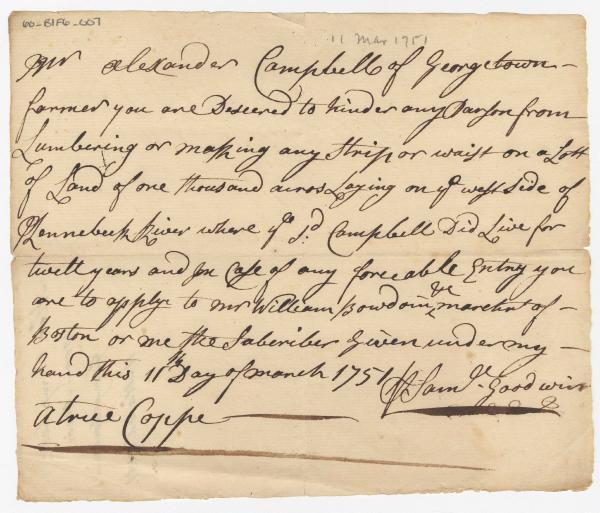 60-B1F6-007
11 Mar 1751
Mr Alexander Campbell of Georgetown
farmer you are Desiered to hinder any Parson from
Lumbering or making any Strip or waist on a Lott
of Land of one thousand acres Laying on ye west Side of
Kennebeck River where ye sd Campbell Did Live for
twelt years and In Case of any forceable Entry you
are to apply to Mr William Bowdoin marchnt of
Boston or me the Subcriber Given under my
hand this 11th Day of march 1751 Saml Goodwin
a true Coppe